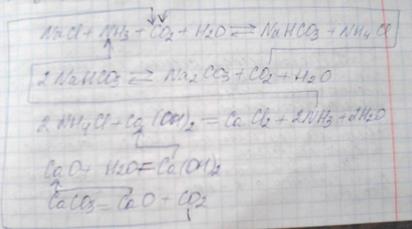 NaCl + NH3 + CO2 + H2O ⇄ NaHCO3 + NH4Cl
2 NaHCO3 ⇄ Na2CO3 + CO2 + H2O
2 NH4Cl + Ca(OH)2 = CaCl2 + 2NH3 + 2H2O
CaO + H2O = Ca(OH)2
CaCO3 = CaO + CO2